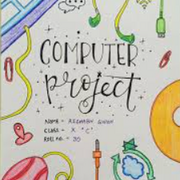 COMPUTER
project
NAME -
CLASS - X "C"
ROLL NO. - 30